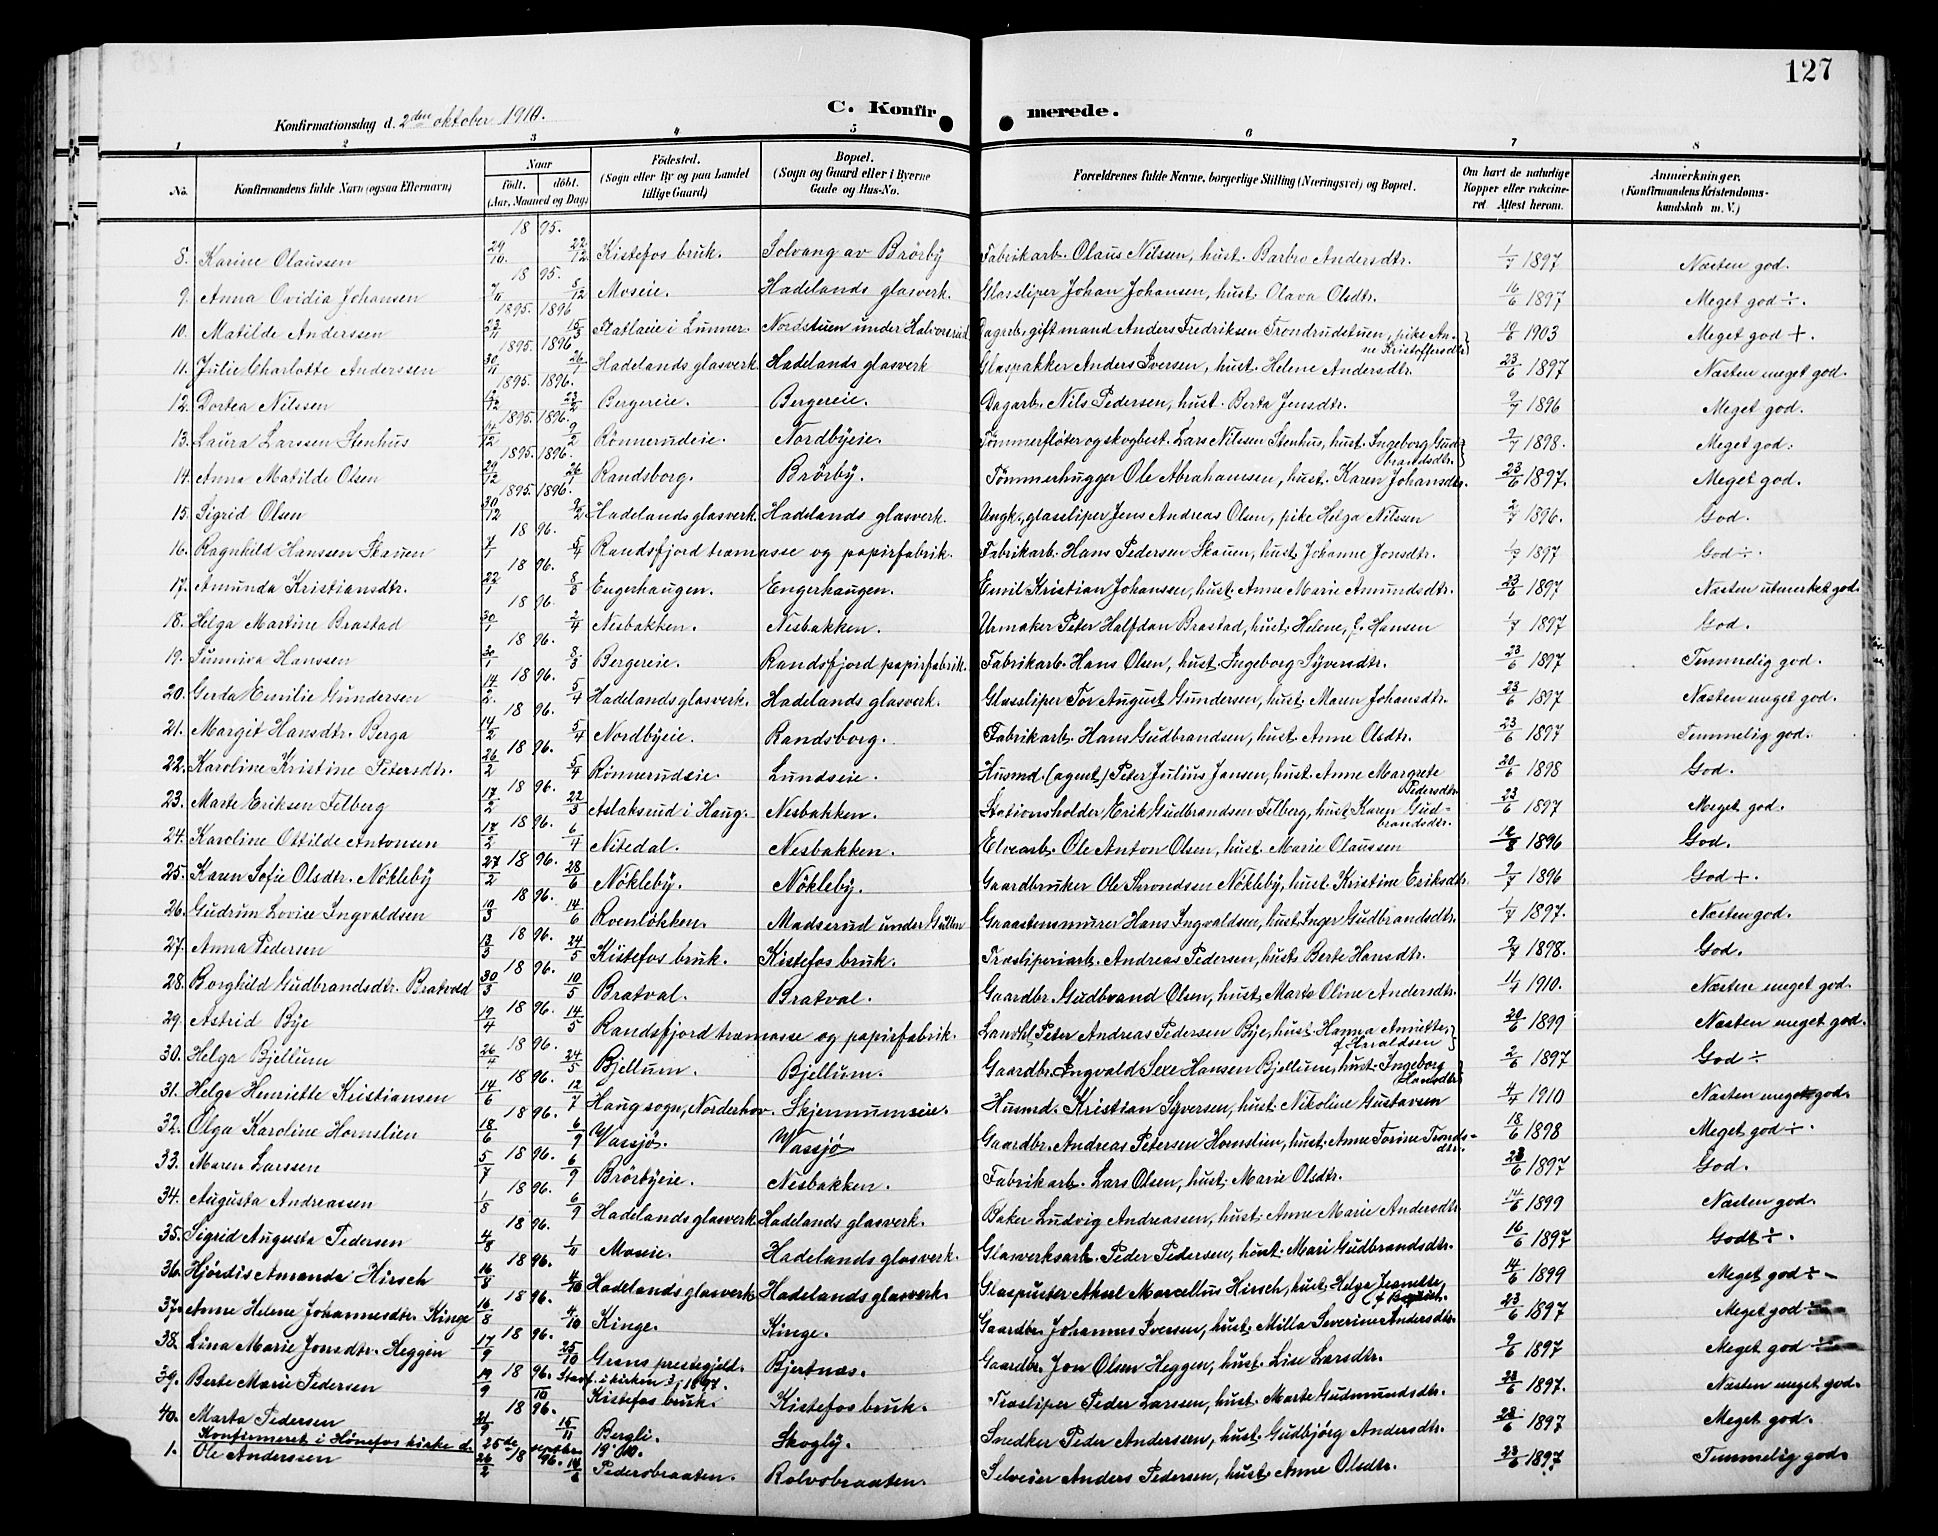 127
C. Konfirmerede.
Konfirmationsdag d. 2den oktober 1910.
1 2 3 4 5 6 7 8
No. Konfirmandens fulde Navn (ogsaa Efternavn) Naar født. døbt. (Aar, Maaned og Dag) Fødested. (Sogn eller By og paa Landet tillige Gaard) Bopæl. (Sogn og Gaard eller i Byerne Gade og Hus-No. Forældrenes fulde Navne, borgerlige Stilling (Næringsvei) og Bopæl. Om havt de naturlige Kopper eller vakcineret Attest herom. Anmerkninger. (Konfirmandens Kristendomskundskab m. V.)
8. Karine Olaussen 1895. 29/10. 22/12 Kistefos bruk. Solvang av Brørby Fabrikarb. Olaus Nilssen, hust. Barbro Andersdtr. 1/7 1897 Næsten god.
9. Anna Ovidia Johansen 1895. 7/11 8/12 Moseie. Hadelands glasverk. Glassliper Johan Johansen, hust. Olava Olsdtr. 16/6 1897 Meget god ÷.
10. Matilde Anderssen 1895. 1896 15/3 Flatlaeie i Lunner. Nordstuen under Halvorsrud Dagarb. gift mand Anders Fredriksen Trondrudstuen, pike Anne Kristoffersdtr. 1903 Meget god +.
11. Julie Charlotte Anderssen 1895. 1896 30/11 26/1 Hadelands glasverk. Hadelands glasverk Glaspakker Anders Iversen, hust. Helene Andersdtr. 23/6 1897 Næsten meget god.
12. Dortea Nilssen 1895. 1896. 23/2 Bergereie. Bergereie. Dagarb. Nils Pedersen, hust. Berta Jensdtr. 9/7 1896 Meget god.
13. Laura Larssen Stenhus 1895. 1896. 9/2 Rønnerudeie. Nordbyeie. Tømmerfløter og skogbest. Lars Nilssen Stenhus, hust. Ingeborg Gudbrandsdtr. 2/7 1898. Meget god.
14. Anna Matilde Olsen 1895. 1896. 29/12 26/1 Randsborg. Brørby. Tømmerhugger Ole Abrahamsen, hust. Karen Johansdtr. 23/6 1897. Meget god.
15. Sigrid Olsen 1895. 1896. 30/12 9/2 Hadelands glasverk. Hadelands glasverk. Ungk., glassliper Jens Andreas Olsen, pike Helga Nilssen 2/7 1896. God.
16. Ragnhild Hanssen Skauen 1896. 7/1 5/4 Randsfjord træmasse og papirfabrik. Fabrikarb. Hans Pedersen Skauen, hust. Johanne Jonsdtr. 1897 God ÷.
17. Amunda Kristiansdtr. 1896. 22/1 8/3 Engerhaugen. Engerhaugen. Emil Kristian Johansen, hust. Anne Marie Amundsdtr. 23/6 1897 Næsten utmerket god.
18. Helga Martine Brastad 1896 30/1 2/4 Nesbakken. Nesbakken. Urmaker Peter Halfdan Brastad, hust. Helene, f. Hansen 1/7 1897 God.
19. Sunniva Hanssen 1896. 30/1 8/3 Bergereie. Randsfjord papirfabrik. Fabrikarb. Hans Olsen, hust. Ingeborg Syversdtr. 23/6 1897 Temmelig god.
20. Gerda Emilie Gundersen 1896. 14/2. 5/4 Hadelands glasverk. Hadelands glasverk. Glassliper Tor August Gundersen, hust. Maren Johansdtr. 23/6 1897 Næsten meget god.
21. Margit Hansdtr. Berga 1896. 14/2 5/4 Nordbyeie. Randsborg. Fabrikarb. Hans Gudbrandsen, hust. Anne Olsdtr. 23/6 1897 Temmelig god.
22. Karoline Kristine Petersdtr. 1896. 26/2 5/4 Rønnerudseie. Lundseie. Husmd. (agent) Peter Julius Jansen, hust. Anne Margrete Pedersdtr. 20/6 1898 God.
23. Marte Eriksen Felberg 1896. 17/2 22/3 Aslaksrud i Haug. Nesbakken. Stationsholder Erik Gudbrandsen Felberg, hust. Karen Gudbrandsdtr. 23/6 1897 Meget god.
24. Karoline Ottilde Antonsen 1896. 17/2 6/4 Nitedal. Nesbakken. Elvearb. Ole Anton Olsen, hust. Marie Olaussen 1896 God.
25. Karen Sofie Olsdtr. Nøkleby 1896. 27/2 28/6 Nøkleby. Nøkleby. Gaardbruker Ole Trondsen Nøkleby, hust. Kristine Eriksdtr. 2/7 1896 God +.
26. Gudrun Lovise Ingvaldsen 1896. 10/3 14/6 Roenløkken. Madserud under Gullen Graastensmurer Hans Ingvaldsen, hust. Inger Gudbrandsdtr. 1/7 1897. Næsten god.
27. Anna Pedersen 1896. 13/3 24/5 Kistefos bruk. Kistefos bruk. Træsliperiarb. Andreas Pedersen, hust. Berte Hansdtr. 2/7 1898. God.
28. Borghild Gudbrandsdtr. Bratvold 1896. 30/3 10/5 Bratval. Bratval. Gaardbr. Gudbrand Olsen, hust. Marte Oline Andersdtr. 11/4 1910. Næsten meget god.
29. Astrid Bye 1896. 19/4 14/5 Randsfjord træmasse og papirfabrik. Landhl. Peter Andreas Pedersen Bye, hust. Hanna Anriette, f. Haraldsen 20/6 1899 Næsten meget god.
30. Helga Bjellum 1896. 26/4 24/5 Bjellum. Bjellum. Gaardbr. Ingvald Sexe Hansen Bjellum, hust. Ingeborg Hansdtr. 2/6 1897 God ÷
31. Helga Henriette Kristiansen 1896. 14/6 12/7 Haug sogn, Norderhov. Skjermumseie. Husmd. Kristian Syversen, hust. Nikoline Gustavsen 4/4 1910 Næsten meget god.
32. Olga Karoline Hornslien 1896. 18/6 6/9 Vassjø. Vassjø Gaardbr. Andreas Petersen Hornslien, hust. Anne Torine Trondsdtr. 18/6 1898 Meget god ÷.
33. Maren Larssen 1896. 5/7 6/9 Brørbyeie. Nesbakken. Fabrikarb. Lars Olsen, hust. Marie Olsdtr. 23/6 1897 God.
34. Augusta Andreassen 1896. 1/8 6/9 Hadelands glasverk Hadelands glasverk. Baker Ludvig Andreassen, hust. Anne Marie Andersdtr. 14/6 1899 Næsten god.
35. Sigrid Augusta Pedersen 1896. 4/8 1/11 Moseie. Hadelands glasverk. Glasverksarb. Peder Pedersen, hust. Mari Gudbrandsdtr. 16/6 1897 Godt ÷.
36. Hjørdis Amanda Hirsch 1896. 16/8 4/10 Hadelands glasverk Hadelands glasverk. Glaspuster Aksel Marcellus Hirsch, hust. Helga Jeanette, f. 14/6 1899 Meget god ÷
37. Anne Helene Johannesdtr. Kinge 1896. 16/8 4/10 Kinge. Kinge. Gaardbr. Johannes Iversen, hust. Milla Severine Andersdtr. 23/6 1897 Meget god ÷
38. Lina Marie Jonsdtr. Heggen 1896. 17/9 25/10 Grans prestegjeld. Bjertnæs. Gaardbr. Jon Olsen Heggen, hust. Lise Larsdtr. 9/6 1897 Meget god ÷
39. Berte Marie Pedersen 1896. 19/9 Stadf. i kirken 3/1 1897. Kistefos bruk. Kistefos bruk. Træsliper Peder Larssen, hust. Marte Gudmundsdtr. 23/6 1897. Næsten meget god.
40. Marta Pedersen 1896. 21/9 15/11 Bergli. Skogly. Snedker Peder Anderssen, hust. Gudbjørg Andersdtr. 23/6 1897 Meget god.
Konfirmeret i Hønefos kirke d. 25de septbr. 1910.
1. Ole Anderssen 1896. 26/2 14/6 Pedersbraaten. Rolvsbraaten. Selveier Anders Pedersen, hust. Anne Olsdtr. 23/6 1897 Temmelig god.